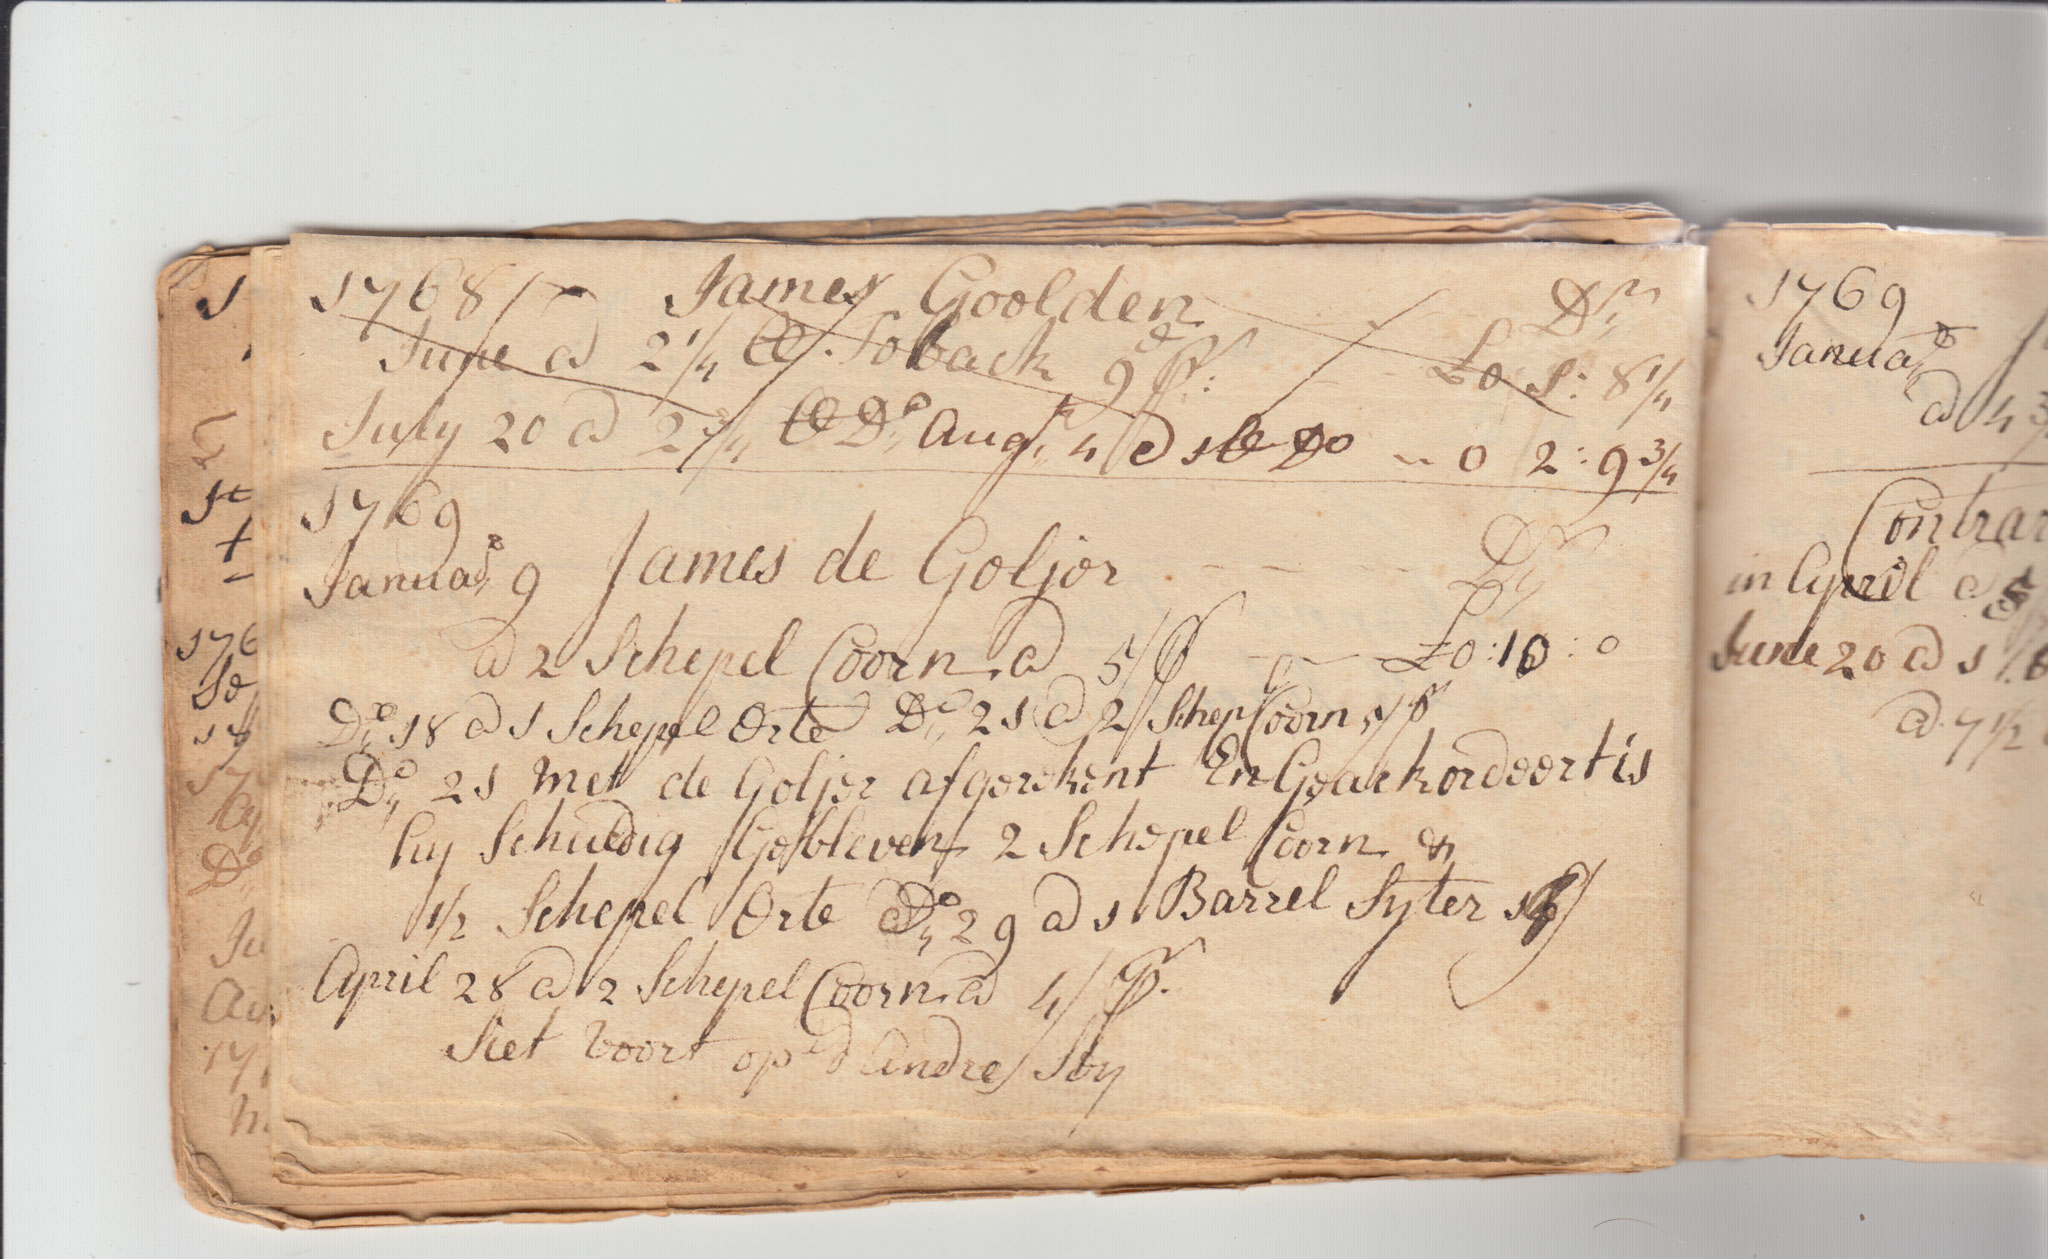 1768 James Goolden Dr
June a 2 1/4 lb Toback 9d pr: £0 1: 8 1/4
July 20 a 2 3/4 lb Do Augt 4 a 1 lb Do -- 0 2: 9 3/4
1769
Januar 9 James de Goljer - - - - Dr
a 2 Schepel Coorn a 5/ pr - - - £0:10:0
Do 18 a 1 Schepel Orte Do 21 a 2 Schep Coorn 5/ pr
Do 21 met de Goljer afgerekent En Geackordeert is
hy Schuldig Gebleven 2 Schepel Coorn &
1/2 Schepel Orte Do 29 a 1 Barrel Syter
April 28 a 2 Schepel Coorn a 4/ pr
Siet voort op d andre Sy
1769
Januar
a 4
Contrar
in April a
June 20 a 1
a 7 1/2